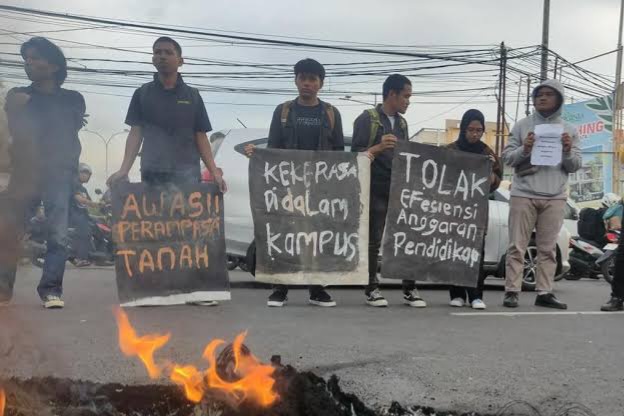 AWASI!
PERAMPASA
TANAH
KEKERASA
Di dalam
Kampus
TOLAK
EFesiensi
Anggaran
Pendidikan
HING